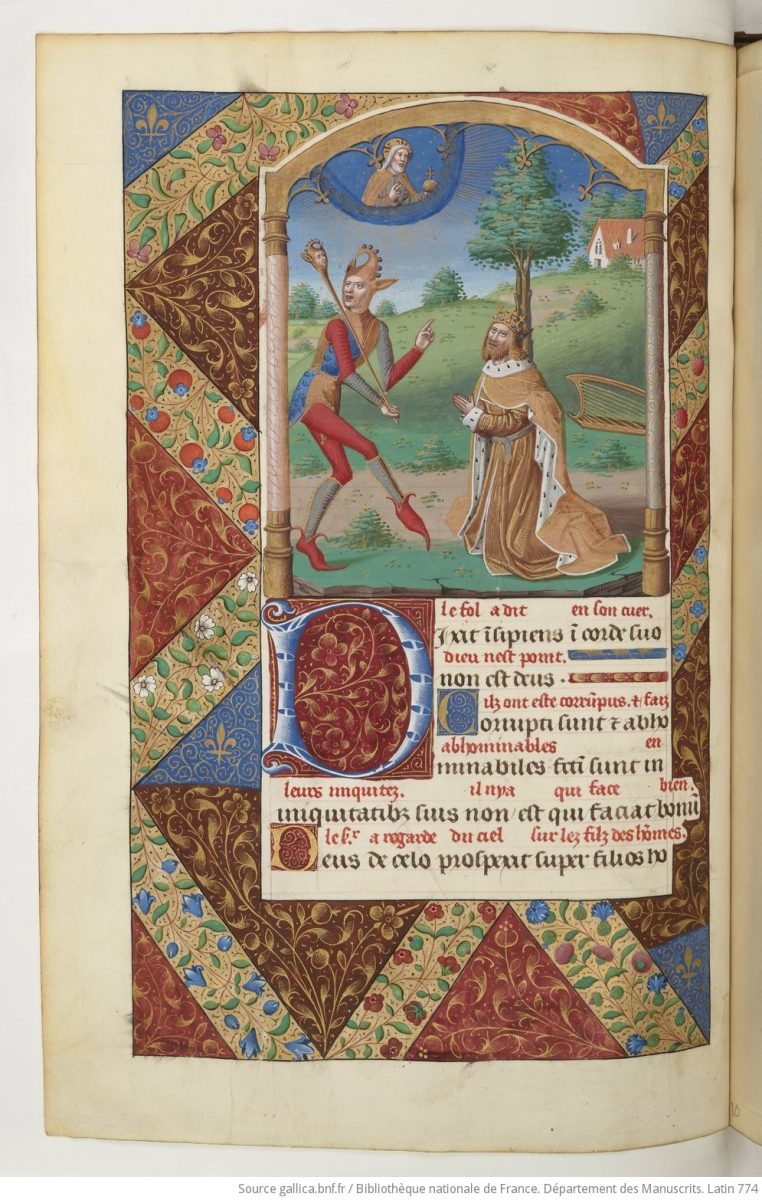 le fol a dit en son cuer.
Dixit īsipiens ī corde suo
dieu nest point.
non est deus.
ilz ont este corrūpus. & faiz
Corrupti sunt & abho
abhominables en
minabiles fcti sunt in
leurs iniquitez. il nya qui face bien.
iniquitatibz suis non est qui faciat bonū
le sr a regarde du ciel sur lez filz des hōmes.
Deus de celo prospexit super filios ho
10
Source gallica.bnf.fr / Bibliothèque nationale de France. Département des Manuscrits. Latin 774